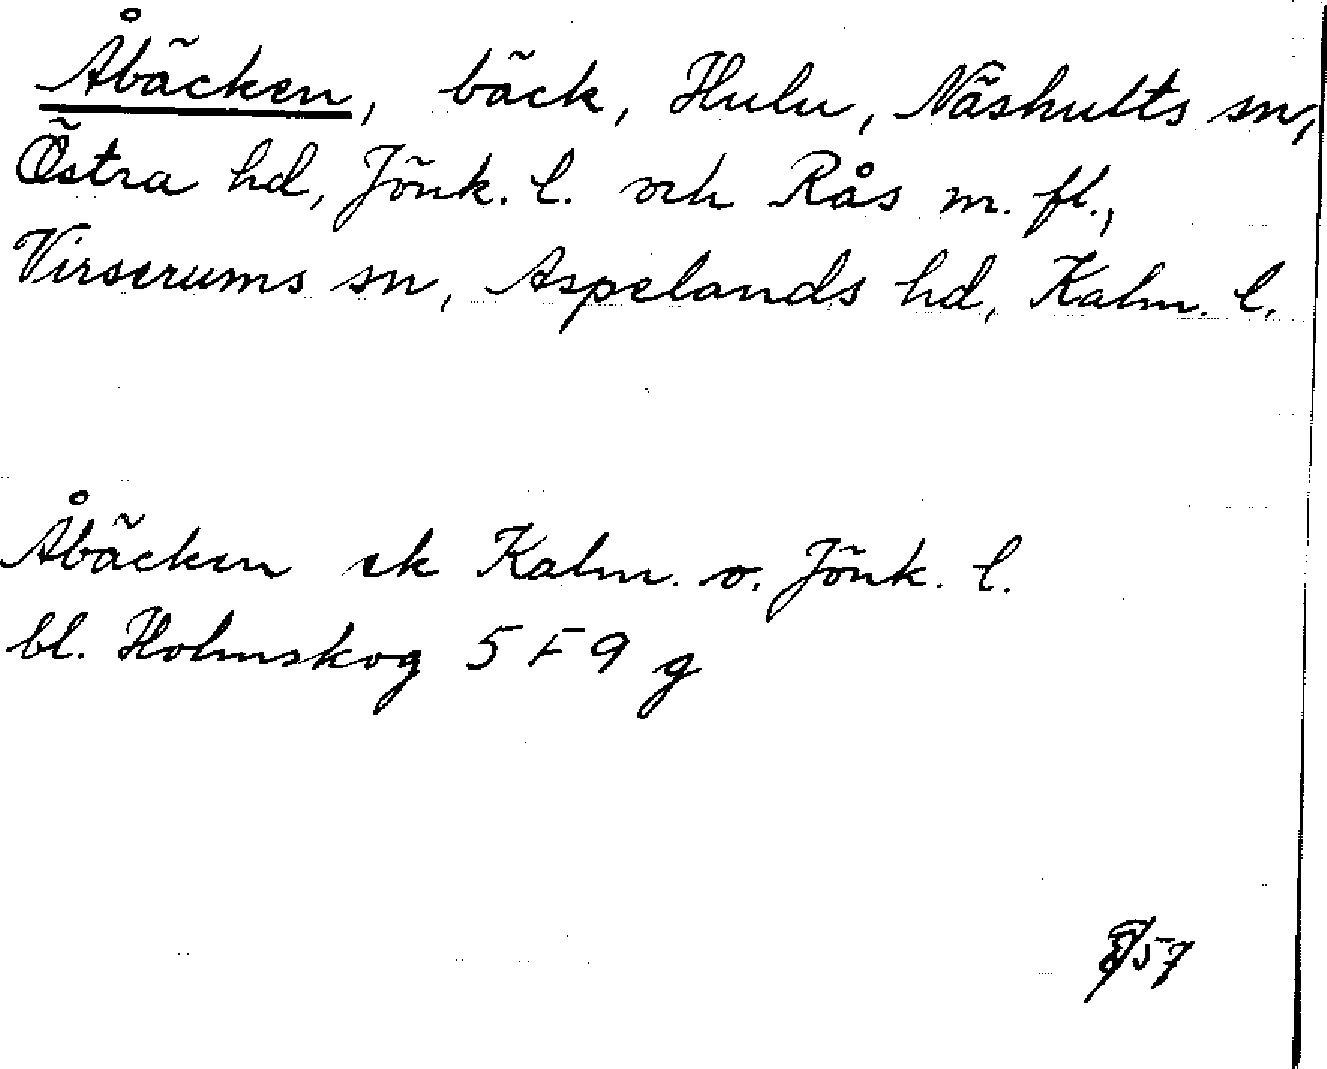 Åbäcken, bäck, Hulu, Näshults sn,
Östra hd, Jönk. l. och Rås m. fl.,
Virserums sn, Aspelands hd, Kalm. l.
Åbäcken ek Kalm. o. Jönk. l.
bl. Holmskog 5 F 9 g
57